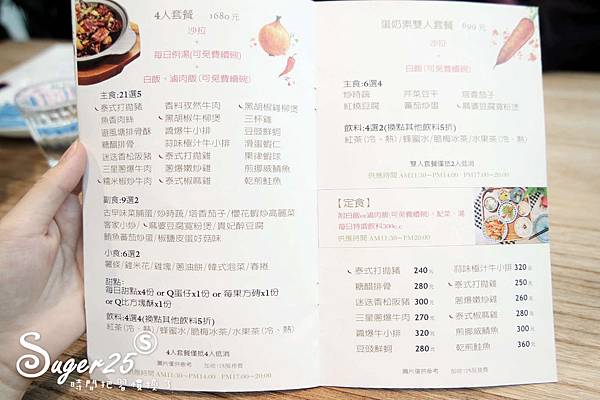 4人套餐 1680元
沙拉
+
每日例湯(可免費續碗)
+
白飯、滷肉飯(可免費續碗)
主食:21選5
泰式打拋豬 香料孜然牛肉 黑胡椒雞柳煲
魚香肉絲 黑胡椒牛柳煲 三杯雞
避風塘排骨酥 醬爆牛小排 豆豉鮮蚵
糖醋排骨 蒜味極汁牛小排 滑蛋蝦仁
迷迭香松阪豬 泰式打拋雞 果律蝦球
三星蔥爆牛肉 蔥爆嫩炒雞 煎挪威鯖魚
糯米椒炒牛肉 泰式椒麻雞 乾煎鮭魚
副食:9選2
古早味菜脯蛋/炒時蔬/塔香茄子/櫻花蝦炒高麗菜
客家小炒/麻婆豆腐寬粉煲/貴妃醉豆腐
鮪魚蕃茄炒蛋/椒鹽皮蛋炒菇味
小食:6選2
薯條/雞米花/雞塊/蔥油餅/韓式泡菜/春捲
甜點:
每日甜點x4份 or Q蛋仔x1份 or 每果方磚x1份
or Q比方塊酥x1份
飲料:4選4(換點其他飲料5折)
紅茶(冷、熱)/蜂蜜水/脆梅冰茶/水果茶(冷、熱)
4人套餐僅抵4人低消
圖片僅供參考 加收10%服務費
供應時間 AM11:30~PM14:00 PM17:00~20:00
蛋奶素雙人套餐 699元
沙拉
+
白飯(可免費續碗)
主食:6選4
炒時蔬 芹菜豆干 塔香茄子
紅燒豆腐 蕃茄炒蛋 麻婆豆腐寬粉煲
飲料:4選2(換點其他飲料5折)
紅茶(冷、熱)/蜂蜜水/脆梅冰茶/水果茶(冷、熱)
雙人套餐僅抵2人低消
供應時間 AM11:30~PM14:00 PM17:00~20:00
【定食】
附白飯or滷肉飯(可免費續碗)、配菜、湯
每日特調飲料300c.c
供應時間 AM11:30~PM20:00
泰式打拋豬 240元 蒜味極汁牛小排 320元
糖醋排骨 280元 泰式打拋雞 250元
迷迭香松阪豬 300元 蔥爆嫩炒雞 260元
三星蔥爆牛肉 270元 泰式椒麻雞 280元
醬爆牛小排 320元 煎挪威鯖魚 300元
豆豉鮮蚵 280元 乾煎鮭魚 360元
圖片僅供參考 加收10%服務費
Suger25 S
時間把習慣換了